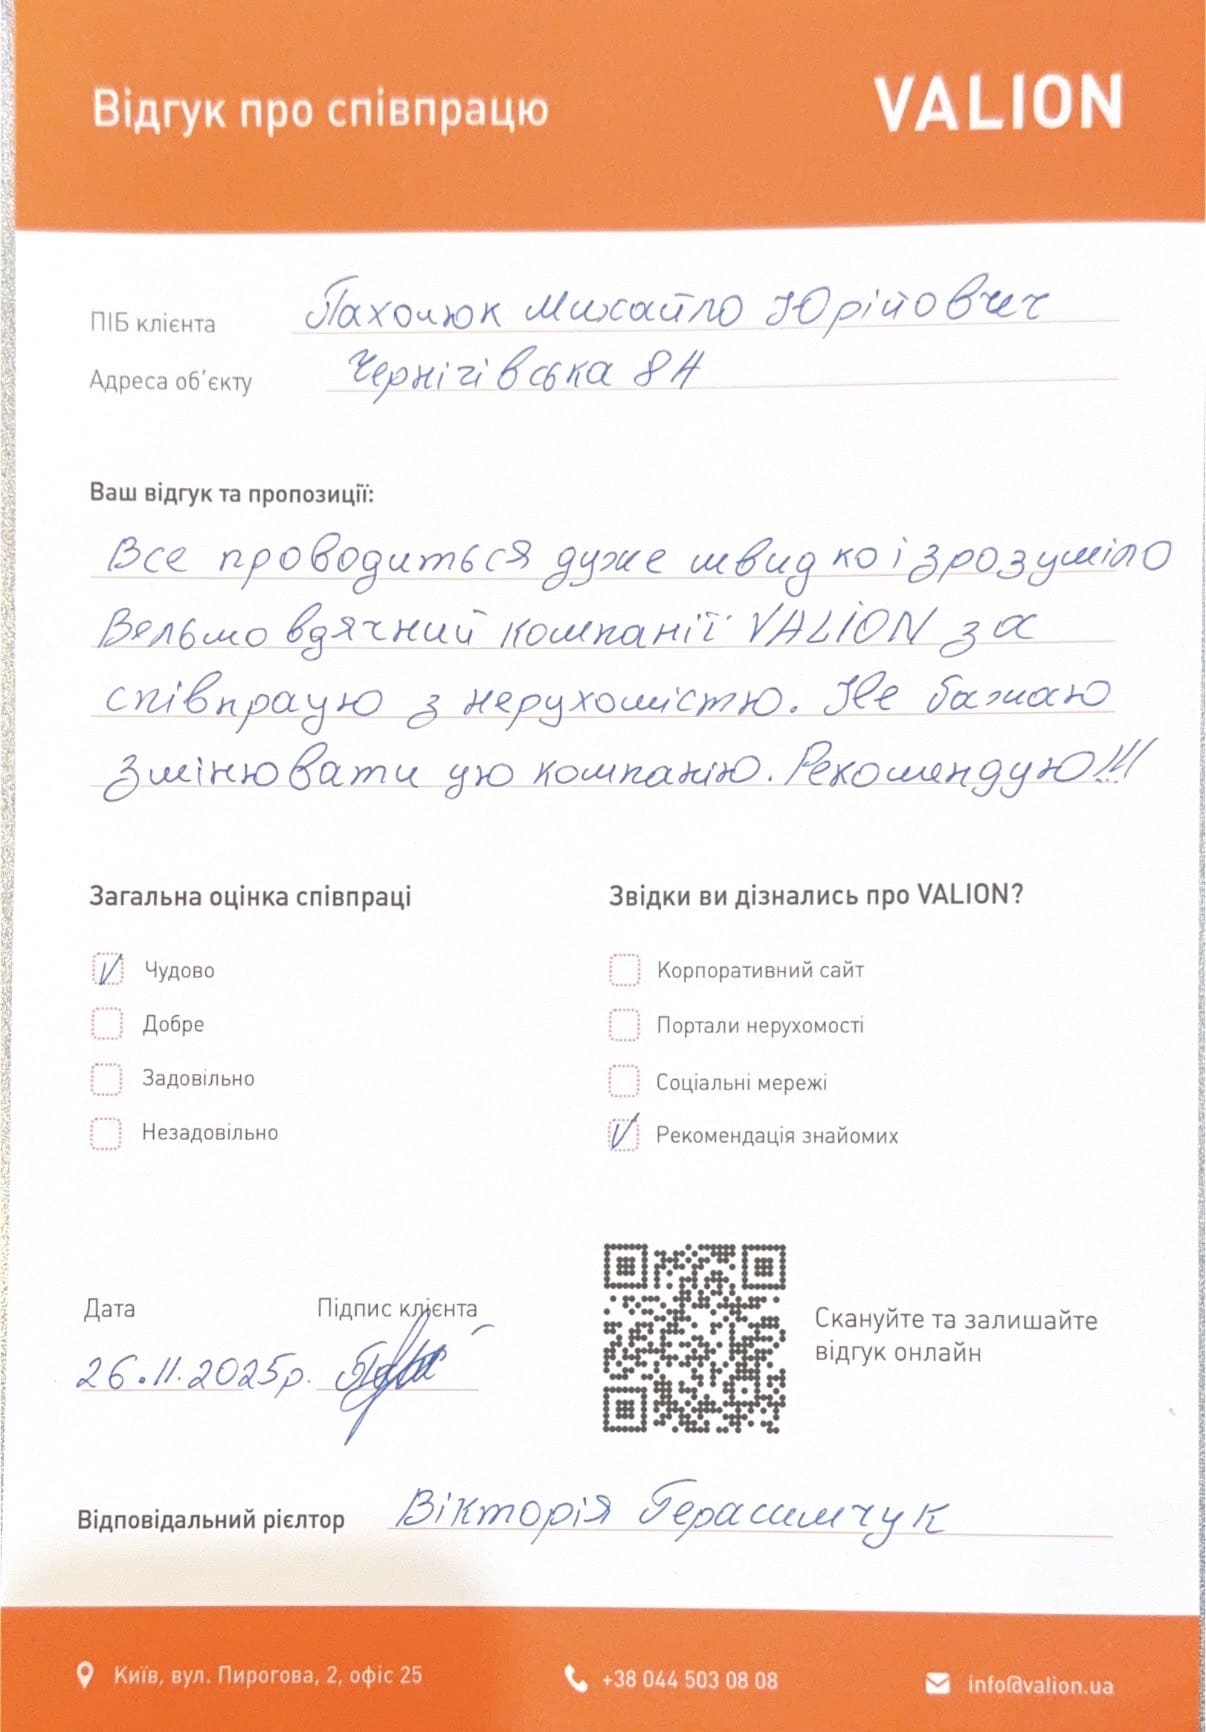 Відгук про співпрацю
VALION
ПІБ клієнта Пахолюк Михайло Юрійович
Адреса об'єкту Чернігівська 8А
Ваш відгук та пропозиції:
Все проводиться дуже швидко і зрозуміло
Вельмо вдячний компанії VALION за
співпрацю з нерухомістю. Не бажаю
змінювати цю компанію. Рекомендую!!!
Загальна оцінка співпраці
Чудово
Добре
Задовільно
Незадовільно
Звідки ви дізнались про VALION?
Корпоративний сайт
Портали нерухомості
Соціальні мережі
Рекомендація знайомих
Дата
26.11.2025р.
Підпис клієнта
Скануйте та залишайте
відгук онлайн
Відповідальний рієлтор Вікторія Герасимчук
Київ, вул. Пирогова, 2, офіс 25
+38 044 503 08 08
info@valion.ua